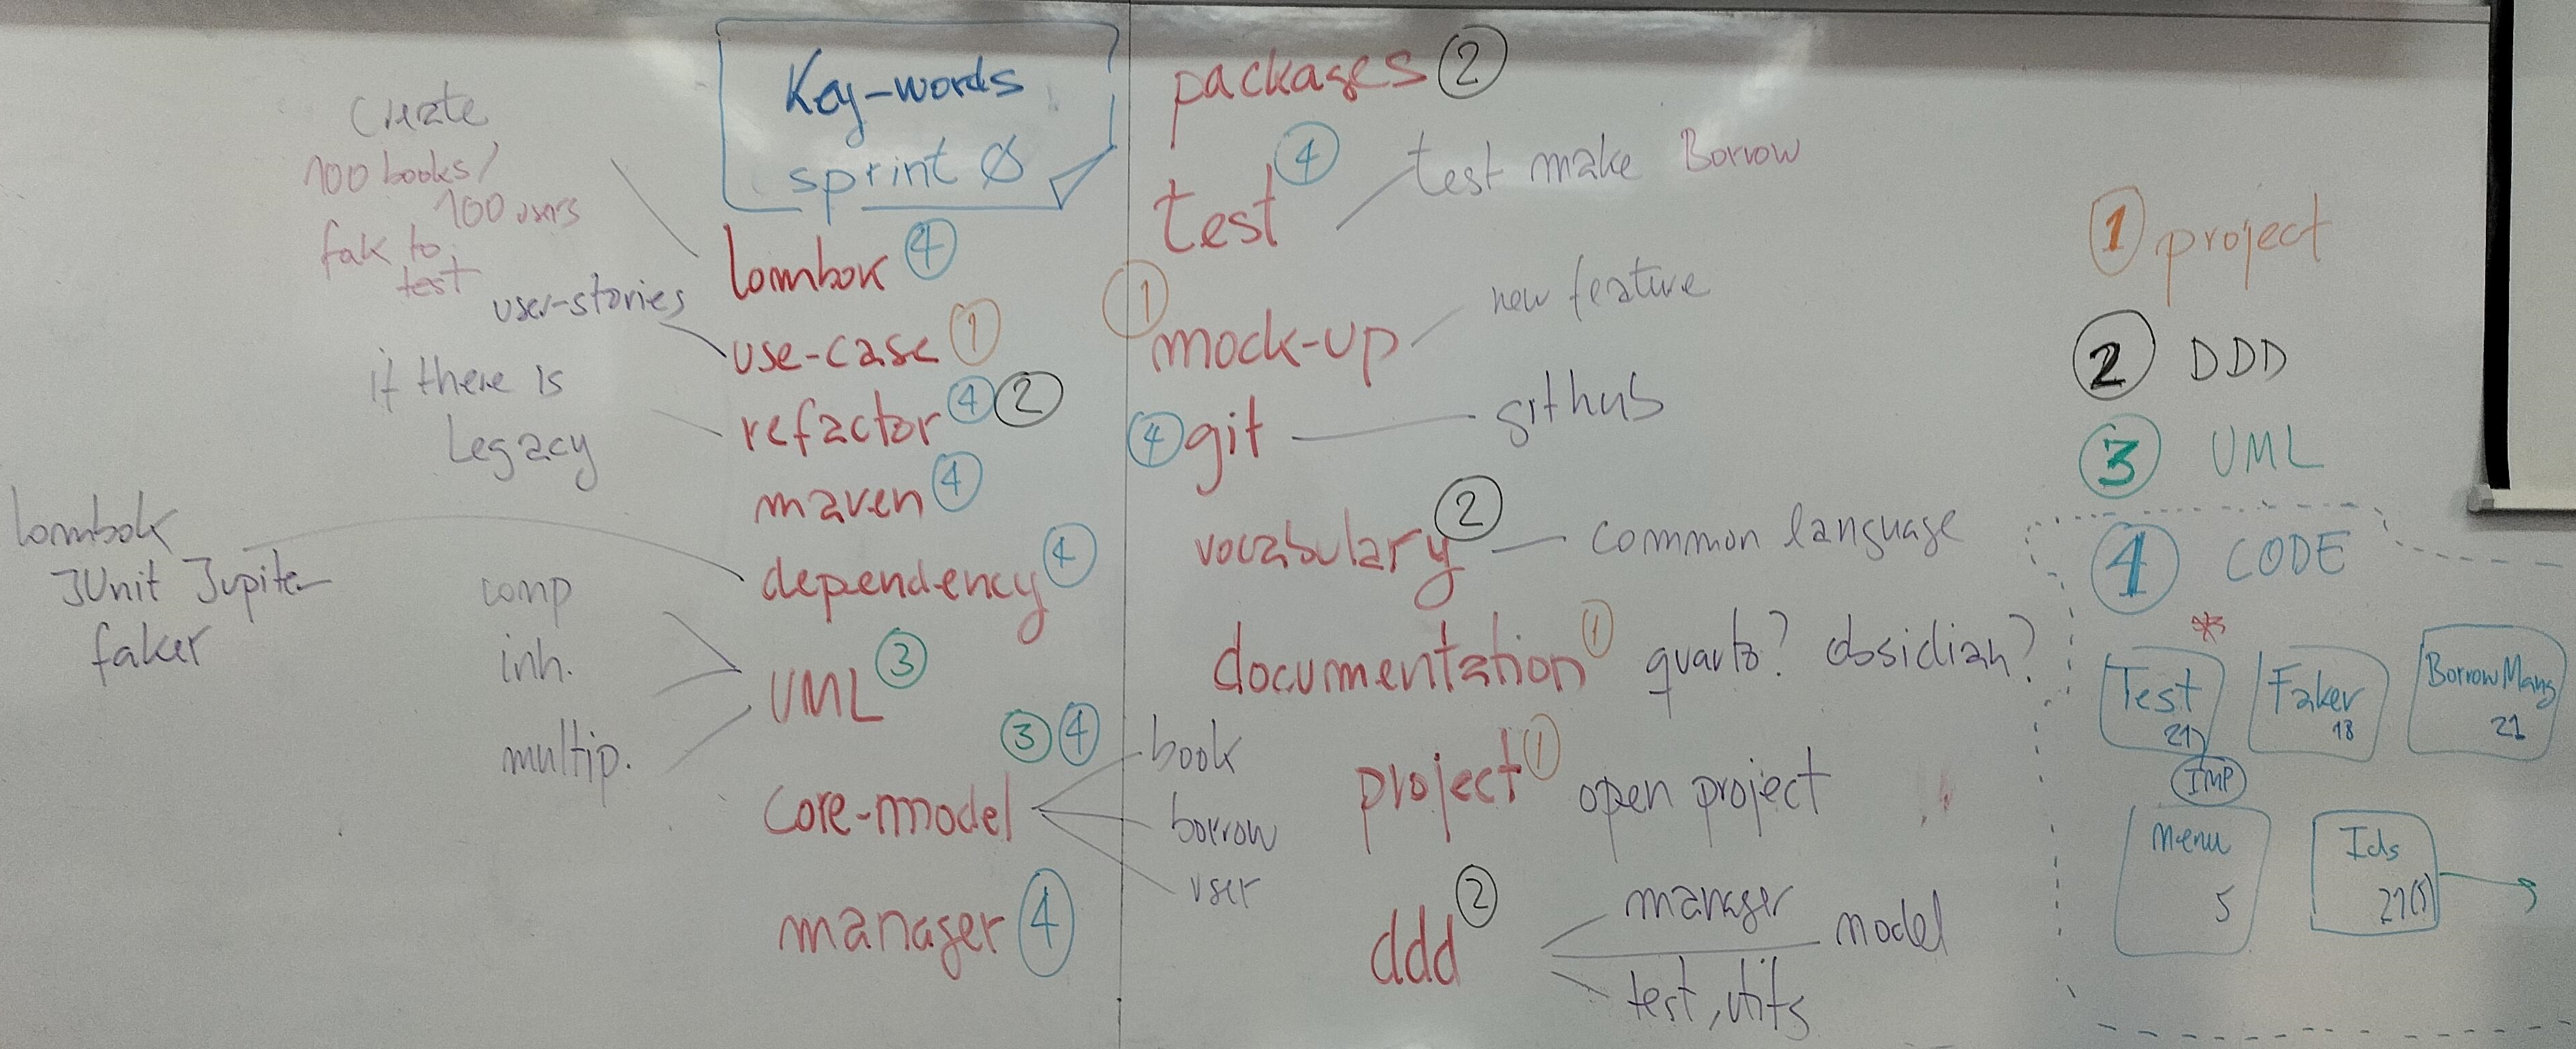 Key-words
sprint Ø
Create
100 books/
100 users
fak to
test
lombok 4
user-stories
use-case 1
if there is
Legacy
refactor 4 2
maven 4
lombok
JUnit Jupiter
faker
dependency 4
comp
inh.
multip.
UML 3
3 4
core-model
book
borrow
user
manager 4
packages 2
test 4
test make Borrow
1 mock-up
new feature
4 git
github
vocabulary 2
common language
documentation 1 quarto? obsidian?
project 1 open project
ddd 2
manager
model
test, utils
1 project
2 DDD
3 UML
4 CODE
*
Test
21
Faker
18
BorrowMang
21
IMP
Menu
5
Ids